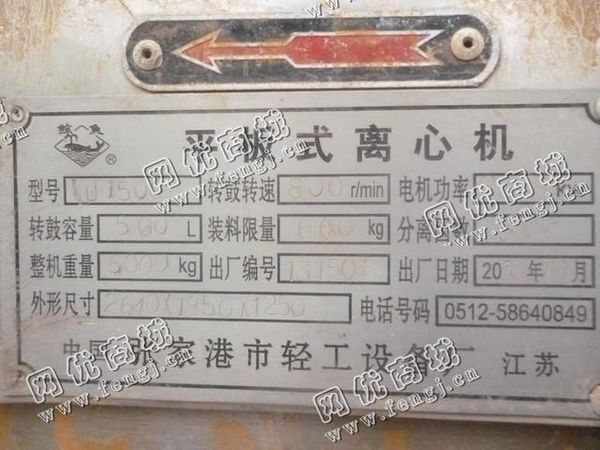 鲸鱼
®
平板式离心机
型号 转鼓转速 800 r/min 电机功率 Kw
转鼓容量 500 L 装料限量 600 kg 分离因数
整机重量 kg 出厂编号 出厂日期 20 年 月
外形尺寸 电话号码 0512-58640849
中国 张家港市轻工设备厂 江苏
网优商城
www.fengj.cn
网优商城
www.fengj.cn
网优商城
www.fengj.cn
网优商城
www.fengj.cn
网优商城
www.fengj.cn